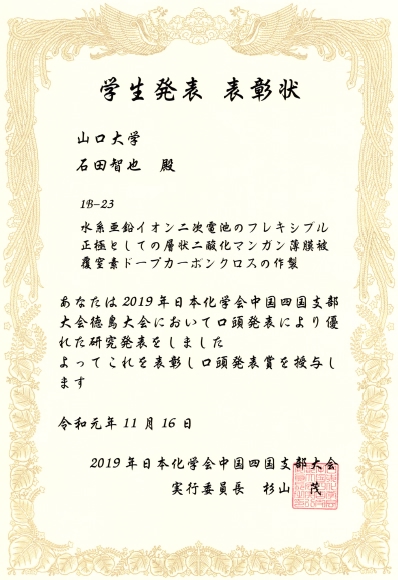 学生発表 表彰状
山口大学
石田智也 殿
1B-23
水系亜鉛イオン二次電池のフレキシブル
正極としての層状二酸化マンガン薄膜被
覆窒素ドープカーボンクロスの作製
あなたは2019年日本化学会中国四国支部
大会徳島大会において口頭発表により優
れた研究発表をしました
よってこれを表彰し口頭発表賞を授与し
ます
令和元年11月16日
2019年日本化学会中国四国支部大会
実行委員長 杉山 茂